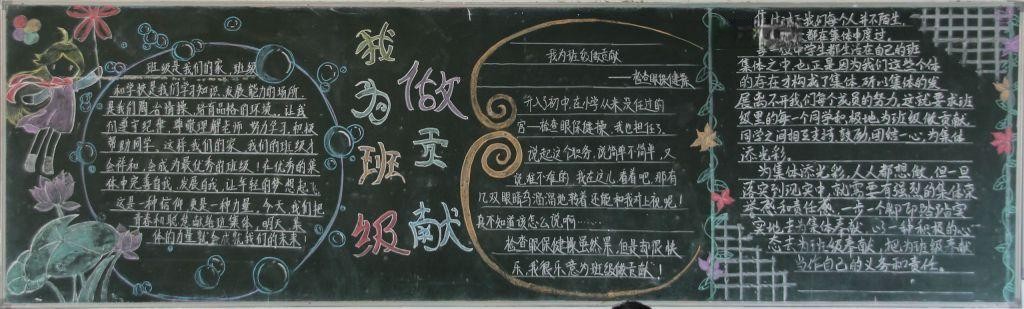 班级是我们的家 班级
和学校是我们学习知识、发展能力的场所
是我们陶冶情操、培育品格的环境。让我
们遵守纪律、尊敬理解老师、努力学习、积极
帮助同学。这样我们的家、我们的班级才
会祥和、会成为最优秀的班级！在优秀的集
体中完善自我、发展自我、让年轻的梦想起飞
这是一种信仰更是一种力量。今天我们把
青春和聪明献给班集体，明天集
体的力量就会点亮我们的未来！
我为班级
做贡献
我为班级做贡献
——检查眼保健操
升入初中，在小学从未没任过的
官—检查眼保健操，我也担任了。
说起这个职务，说简单不简单，又
说难不难的，我在这儿看着吧，那有
几双眼睛乌溜溜地
还能和我对上视呢！
真不知道该怎么说啊……
检查眼保健操虽然累，但是却很快
乐，我很乐意为班级做贡献！
我们每个人并不陌生，
都在集体中度过，
学生都生活在自己的班
集体之中，也正是因为我们这些个体
的存在才构成了集体，所以集体的发
展离不开我们每个成员的努力，这就要求班
级里的每一个同学积极地为班级做贡献
同学之间相互支持鼓励，团结一心，为集体
添光彩。
为集体添光彩，人人都想做，但一旦
落实到现实中，就需要有强烈的集体荣
誉感和责任感，一步一个脚印踏踏实
实地去为集体奉献，以一种积极的心
态去为班级奉献，把为班级奉献
当作自己的义务和责任。